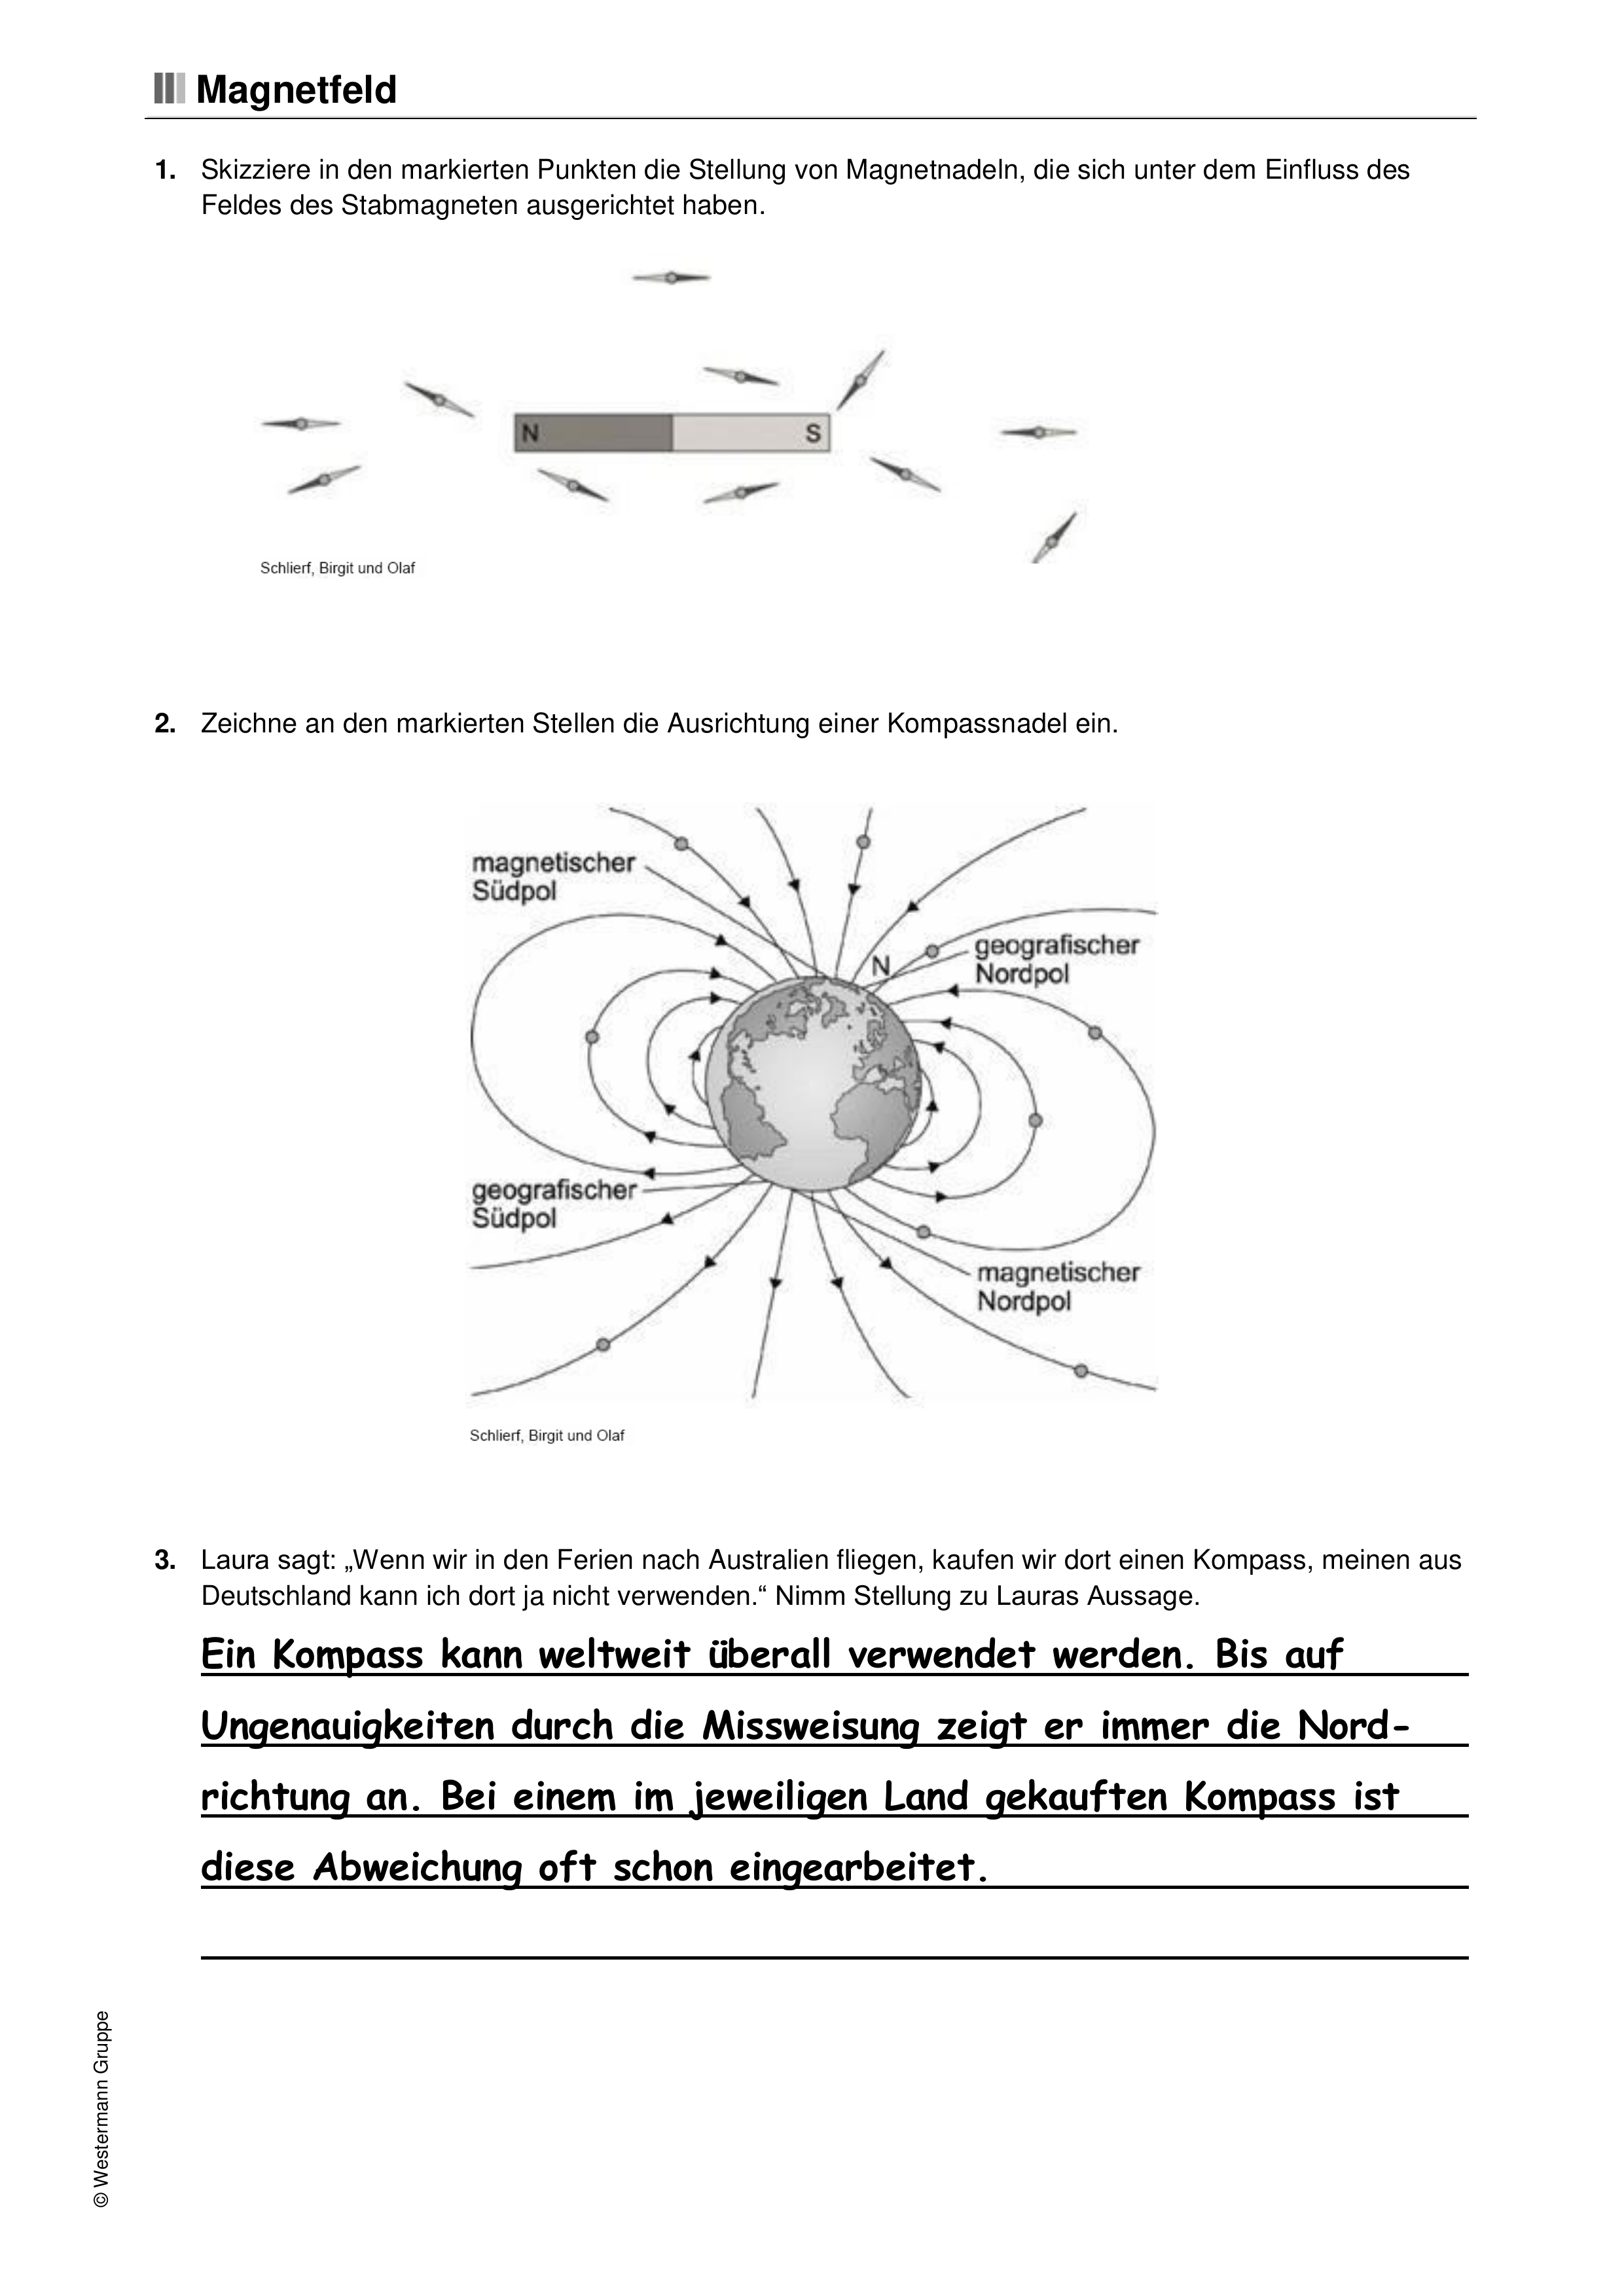 Magnetfeld
1. Skizziere in den markierten Punkten die Stellung von Magnetnadeln, die sich unter dem Einfluss des
Feldes des Stabmagneten ausgerichtet haben.
N
S
Schlierf, Birgit und Olaf
2. Zeichne an den markierten Stellen die Ausrichtung einer Kompassnadel ein.
magnetischer
Südpol
N
geografischer
Nordpol
geografischer
Südpol
magnetischer
Nordpol
Schlierf, Birgit und Olaf
3. Laura sagt: „Wenn wir in den Ferien nach Australien fliegen, kaufen wir dort einen Kompass, meinen aus
Deutschland kann ich dort ja nicht verwenden.“ Nimm Stellung zu Lauras Aussage.
Ein Kompass kann weltweit überall verwendet werden. Bis auf
Ungenauigkeiten durch die Missweisung zeigt er immer die Nord-
richtung an. Bei einem im jeweiligen Land gekauften Kompass ist
diese Abweichung oft schon eingearbeitet.
© Westermann Gruppe